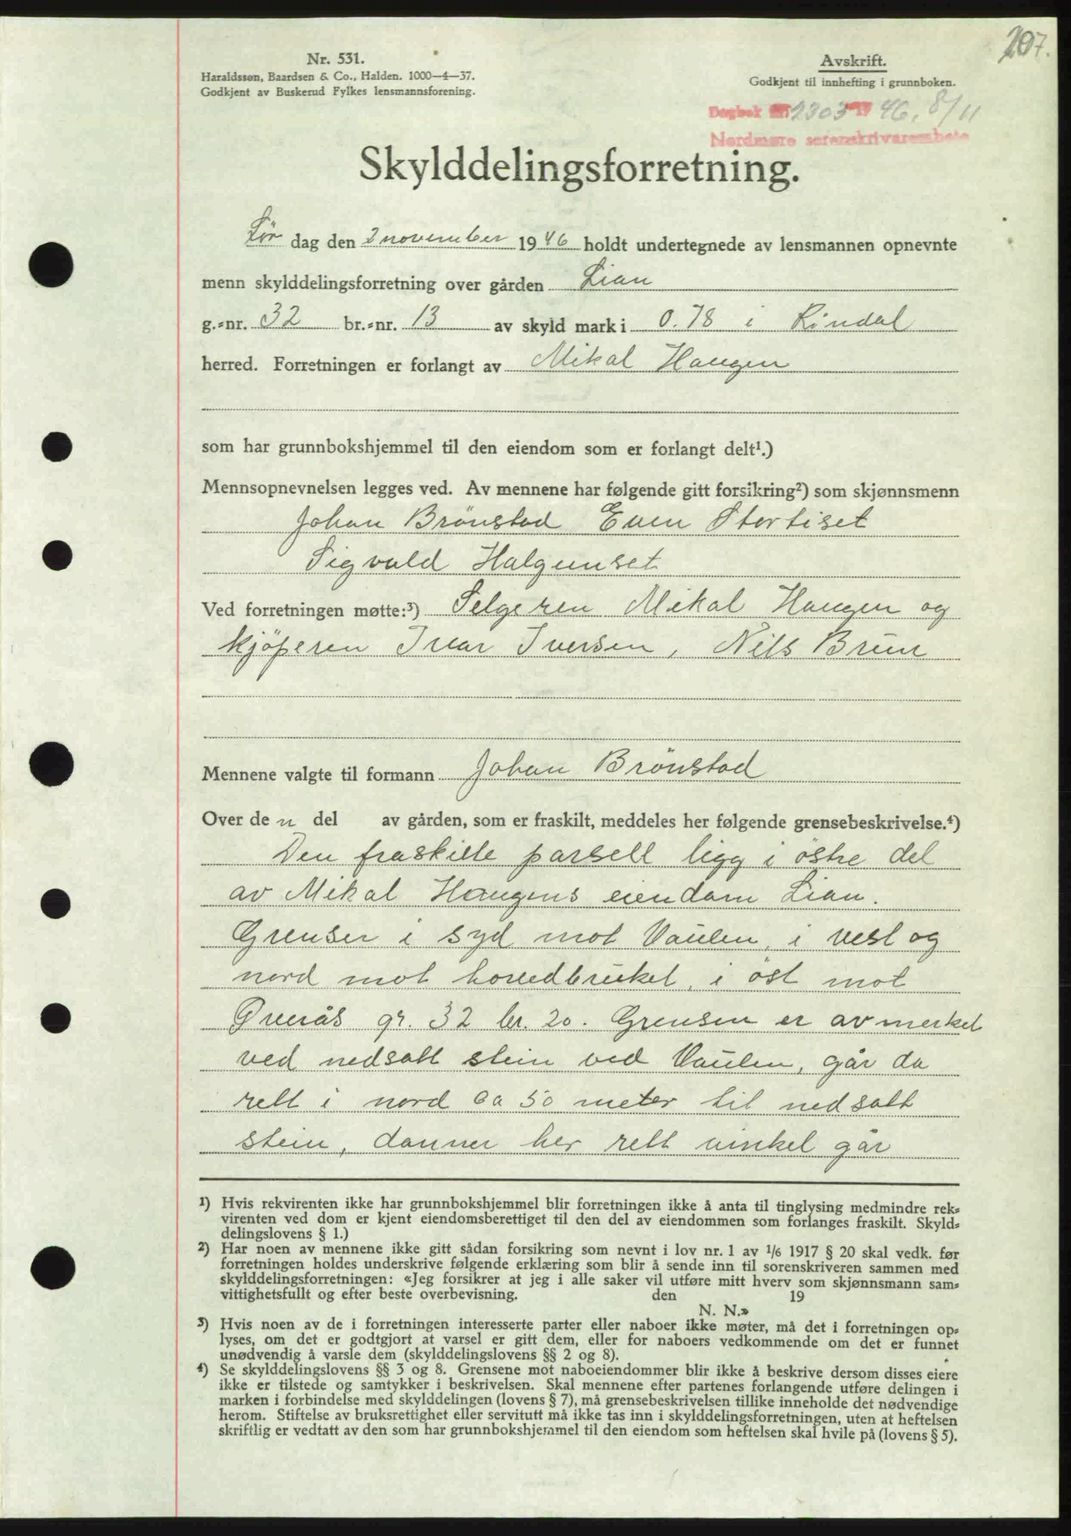 207.
Nr. 531.
Haraldssøn, Baardsen & Co., Halden. 1000—4—37.
Godkjent av Buskerud Fylkes lensmannsforening.
Avskrift.
Godkjent til innhefting i grunnboken.
Dagbok nr. 2303 19 46, 8/11
Nordmøre sorenskriverembete
Skylddelingsforretning.
Lör dag den 2 november 1946 holdt undertegnede av lensmannen opnevnte
menn skylddelingsforretning over gården Lian
g.-nr. 32 br.-nr. 13 av skyld mark i 0.78 i Rindal
herred. Forretningen er forlangt av Mikal Haugen
som har grunnbokshjemmel til den eiendom som er forlangt delt¹.)
Mennsopnevnelsen legges ved. Av mennene har følgende gitt forsikring²) som skjønnsmenn
Johan Brönstad Even Stortiset
Sigvald Halgunset
Ved forretningen møtte:³) Selgeren Mikal Haugen og
kjöperen Ivar Iversen, Nils Brun
Mennene valgte til formann Johan Brönstad
Over de n del av gården, som er fraskilt, meddeles her følgende grensebeskrivelse.⁴)
Den fraskilte parsell ligg i östre del
av Mikal Haugens eiendom Lian.
Grenser i syd mot Vaulen, i vest og
nord mot hovedbruket, i öst mot
Øverås gr. 32 br. 20. Grensen er avmerket
ved nedsatt stein ved Vaulen, går da
rett i nord ca 50 meter til nedsatt
stein, danner her rett vinkel går
¹) Hvis rekvirenten ikke har grunnbokshjemmel blir forretningen ikke å anta til tinglysing medmindre rek-
virenten ved dom er kjent eiendomsberettiget til den del av eiendommen som forlanges fraskilt. Skyld-
delingslovens § 1.)
²) Har noen av mennene ikke gitt sådan forsikring som nevnt i lov nr. 1 av 1/6 1917 § 20 skal vedk. før
forretningen holdes underskrive følgende erklæring som blir å sende inn til sorenskriveren sammen med
skylddelingsforretningen: «Jeg forsikrer at jeg i alle saker vil utføre mitt hverv som skjønnsmann sam-
vittighetsfullt og efter beste overbevisning. den 19
N. N.»
³) Hvis noen av de i forretningen interesserte parter eller naboer ikke møter, må det i forretningen op-
lyses, om det er godtgjort at varsel er gitt dem, eller for naboers vedkommende om det er funnet
unødvendig å varsle dem (skylddelingslovens §§ 2 og 8).
⁴) Se skylddelingslovens §§ 3 og 8. Grensene mot naboeiendommer blir ikke å beskrive dersom disses eiere
ikke er tilstede og samtykker i beskrivelsen. Skal mennene efter partenes forlangende utføre delingen i
marken i forbindelse med skylddelingen (lovens § 7), må grensebeskrivelsen tillike inneholde det nødvendige
herom. Stiftelse av bruksrettighet eller servitutt må ikke tas inn i skylddelingsforretningen, uten at heftelsen
skriftlig er vedtatt av den som har grunnbokshjemmel til den eiendom som heftelsen skal hvile på (lovens § 5).